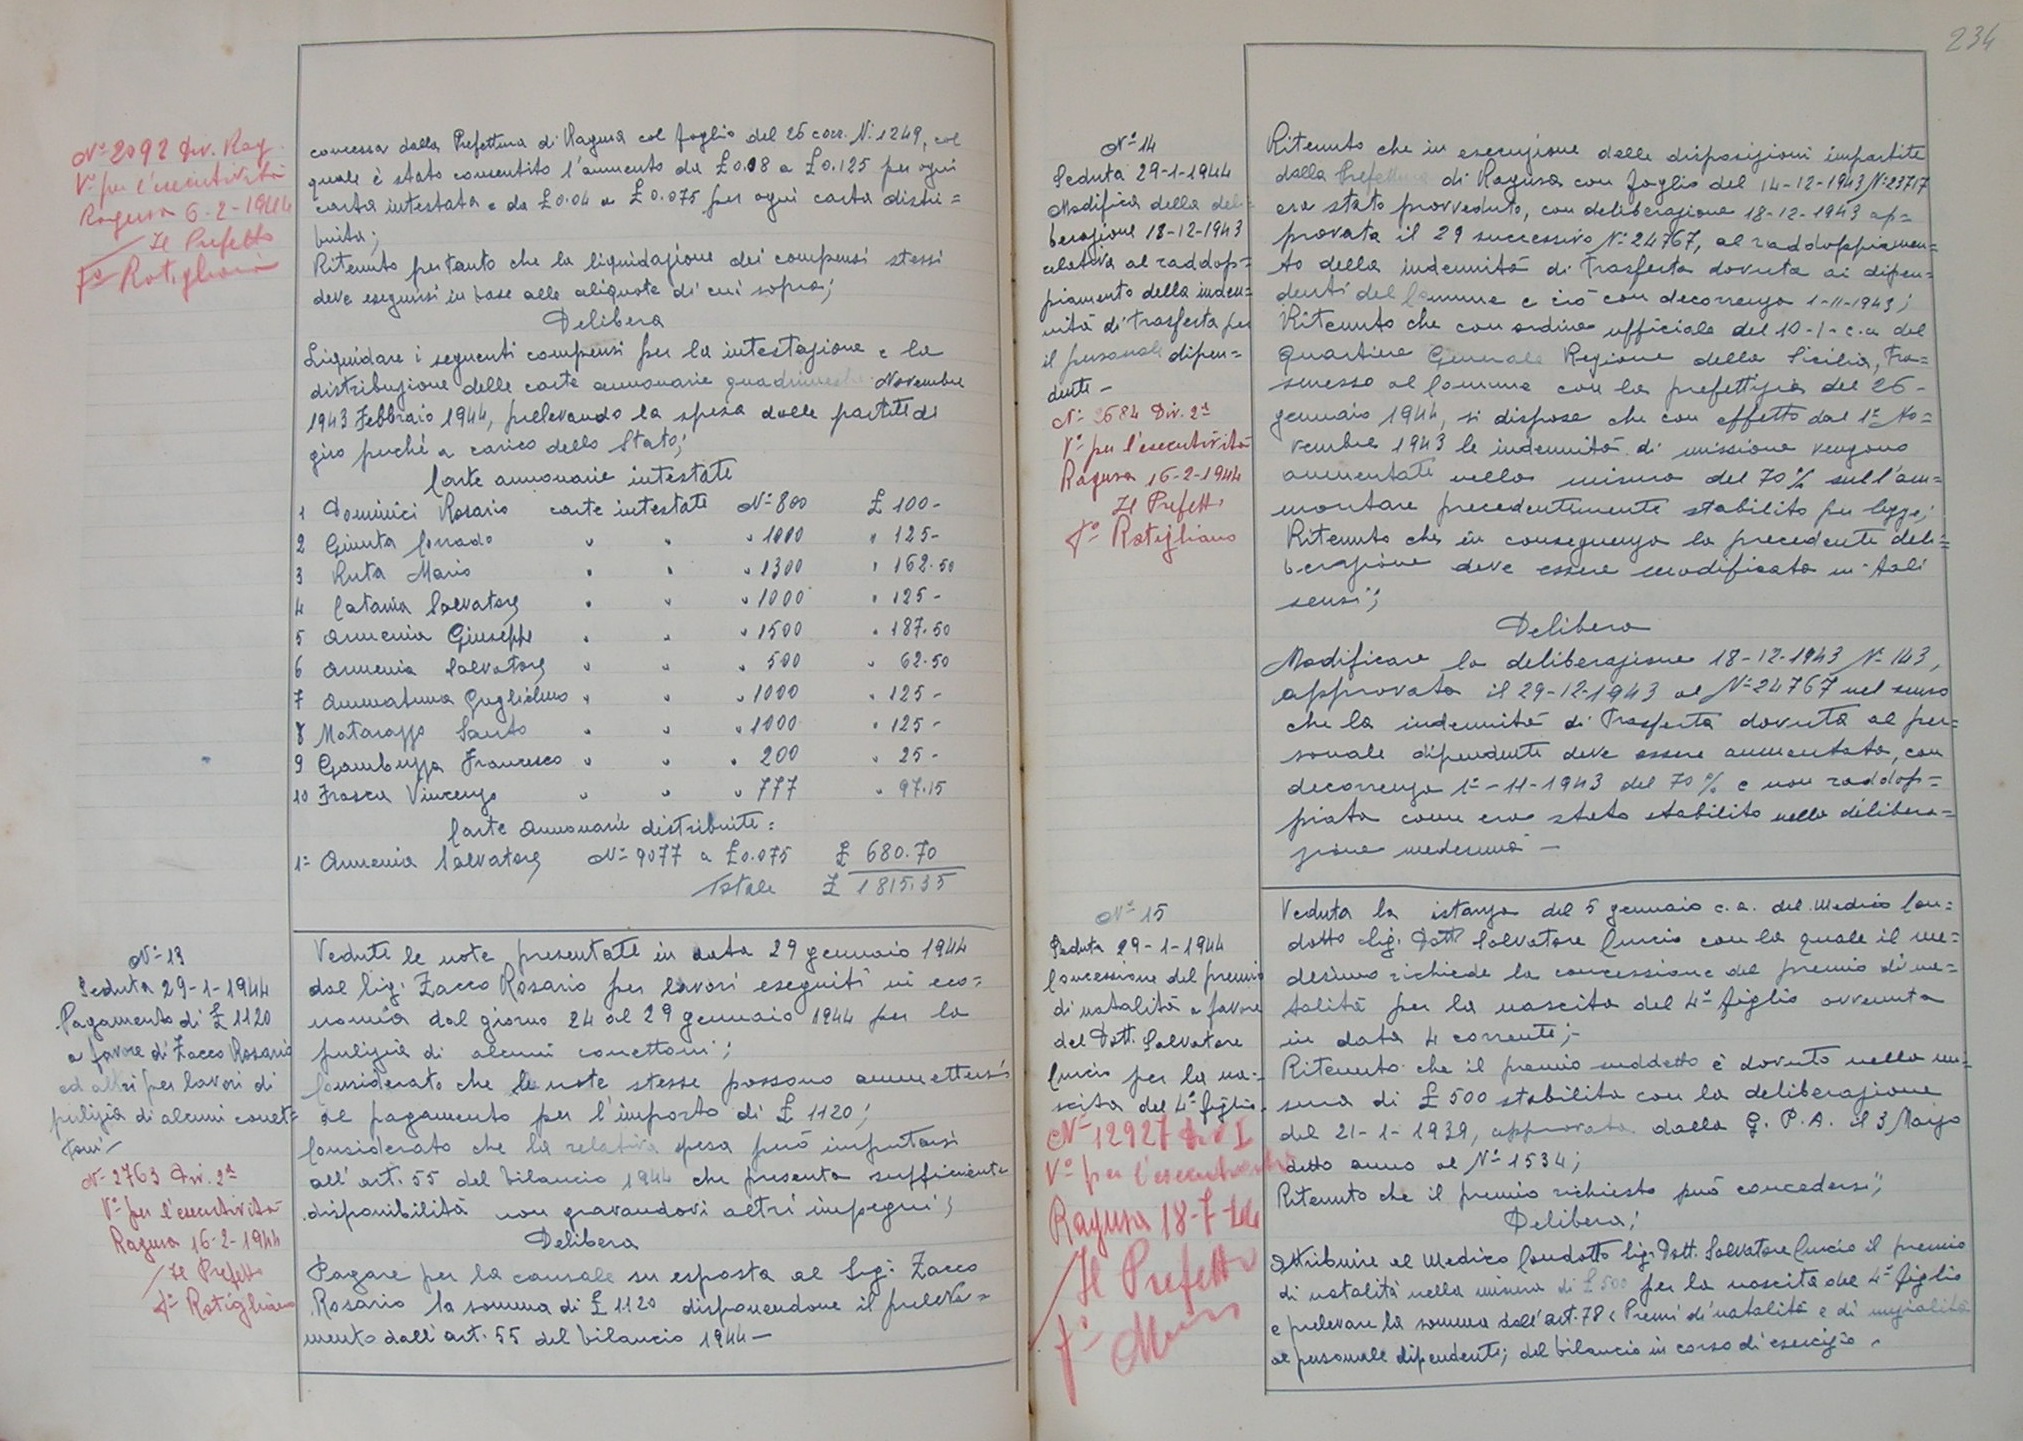 N° 2092 Div. Rag.
V° per l'esecutività
Ragusa 6-2-1944
Il Prefetto
F° Rotigliano
concessa dalla Prefettura di Ragusa col foglio del 26 corr. N° 1249, col
quale è stato consentito l'aumento da £ 0.08 a £ 0.125 per ogni
carta intestata e da £ 0.04 a £ 0.075 per ogni carta distri=
buita;
Ritenuto pertanto che la liquidazione dei compensi stessi
deve eseguirsi in base alle aliquote di cui sopra;
Delibera
Liquidare i seguenti compensi per la intestazione e la
distribuzione delle carte annonarie quadrimestre Novembre
1943 Febbraio 1944, prelevando la spesa dalle partite di
giro perché a carico dello Stato;
Carte annonarie intestate
1 Dominici Rosario carte intestate N° 800 £ 100-
2 Giunta Corrado " " " 1000 " 125-
3 Ruta Mario " " " 1300 " 162.50
4 Catania Salvatore " " " 1000 " 125-
5 Armenia Giuseppe " " " 1500 " 187.50
6 Armenia Salvatore " " " 500 " 62.50
7 Ammatuna Guglielmo " " " 1000 " 125-
8 Matarazzo Santo " " " 1000 " 125-
9 Gambuzza Francesco " " " 200 " 25-
10 Frasca Vincenzo " " " 777 " 97.15
Carte annonarie distribuite:
1= Armenia Salvatore N° 9077 a £ 0.075 £ 680.70
Totale £ 1815.35
N° 13
Seduta 29-1-1944
Pagamento di £ 1120
a favore di Zacco Rosario
ed altri per lavori di
pulizia di alcuni conet=
toni-
N° 2763 Div. 2ª
V° per l'esecutività
Ragusa 16-2-1944
Il Prefetto
F° Rotigliano
Vedute le note presentate in data 29 gennaio 1944
dal Sig. Zacco Rosario per lavori eseguiti in eco=
nomia dal giorno 24 al 29 gennaio 1944 per la
pulizia di alcuni conettoni;
Considerato che le note stesse possono ammettersi
al pagamento per l'importo di £ 1120;
Considerato che la relativa spesa può imputarsi
all'art. 55 del bilancio 1944 che presenta sufficiente
disponibilità non gravandovi altri impegni;
Delibera
Pagare per la causale su esposta al Sig. Zacco
Rosario la somma di £ 1120 disponendone il preleva=
mento dall'art. 55 del bilancio 1944-
234
N° 14
Seduta 29-1-1944
Modifica della deli=
berazione 18-12-1943
relativa al raddop=
piamento della inden=
nità di trasferta per
il personale dipen=
dente-
N° 2684 Div. 2ª
V° per l'esecutività
Ragusa 16-2-1944
Il Prefetto
F° Rotigliano
Ritenuto che in esecuzione delle disposizioni impartite
dalla Prefettura di Ragusa con foglio del 14-12-1943 N° 23717
era stato provveduto, con deliberazione 18-12-1943 ap=
provata il 29 successivo N° 24767, al raddoppiamen=
to della indennità di trasferta dovuta ai dipen=
denti del Comune e ciò con decorrenza 1-11-1943;
Ritenuto che con ordine ufficiale del 10-1-c.a del
Quartiere Generale Regione della Sicilia, tra=
smesso al Comune con la prefettizia del 26-
gennaio 1944, si dispose che con effetto dal 1° No=
vembre 1943 le indennità di missione vengono
aumentate nella misura del 70% sull'am=
montare precedentemente stabilito per legge;
Ritenuto che in conseguenza la precedente deli=
berazione deve essere modificata in tali
sensi;
Delibera
Modificare la deliberazione 18-12-1943 N° 143,
approvata il 29-12-1943 al N° 24767 nel senso
che la indennità di trasferta dovuta al per=
sonale dipendente deve essere aumentata, con
decorrenza 1°-11-1943 del 70% e non raddop=
piata come era stato stabilito nella delibera=
zione medesima-
N° 15
Seduta 29-1-1944
Concessione del premio
di natalità a favore
del Dott. Salvatore
Curcio per la na=
scita del 4° figlio.
N° 12927 Div I
V° per l'esecutività
Ragusa 18-7-44
Il Prefetto
F°
Veduta la istanza del 5 gennaio c.a. del Medico Con=
dotto Sig. Dott. Salvatore Curcio con la quale il me=
desimo richiede la concessione del premio di na=
talità per la nascita del 4° figlio avvenuta
in data 4 corrente;-
Ritenuto che il premio suddetto è dovuto nella mi=
sura di £ 500 stabilita con la deliberazione
del 21-1-1939, approvata dalla G. P. A. il 3 Marzo
detto anno al N° 1534;
Ritenuto che il premio richiesto può concedersi;
Delibera;
Attribuire al Medico Condotto Sig. Dott. Salvatore Curcio il premio
di natalità nella misura di £ 500 per la nascita del 4° figlio
e prelevare la somma dall'art. 78 "Premi di natalità e di nuzialità
al personale dipendente; del bilancio in corso di esercizio.